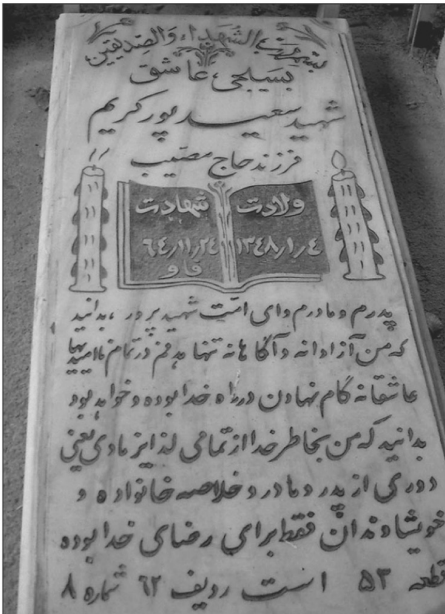 بسم رب الشهداء والصدیقین
بسیجی عاشق
شهید سعید پورکریم
فرزند حاج مصیب
ولادت شهادت
۱۳۴۸/۱/۴ ۶۴/۱۱/۲۴
فاو
پدرم و مادرم وای امت شهید پرور ، بدانید
که من آزادانه و آگاهانه تنها هدفم در تمام ناامیدیها
عاشقانه گام نهادن در راه خدا بوده و خواهد بود
بدانید که من بخاطر خدا از تمامی لذایز مادی یعنی
دوری از پدر و مادر و خلاصه خانواده و
خویشاوندان فقط برای رضای خدا بوده
است
قطعه ۵۳ ردیف ۶۲ شماره ۸